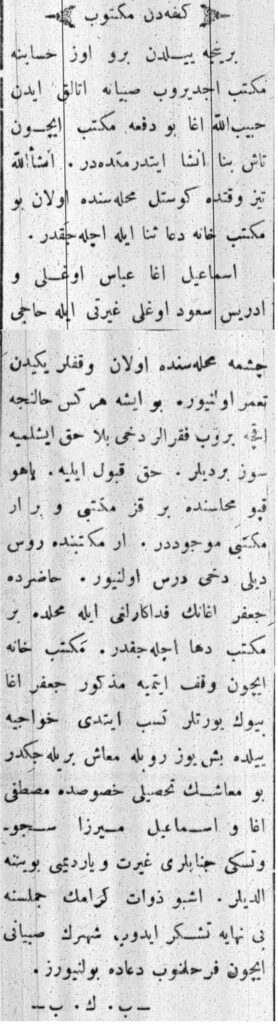 كفه‌دن مكتوب
برنيجه ييلدن برو اوز حسابينه
مكتب اجديروب صبيانه اتالق ايدن
حبيب‌الله اغا بو دفعه مكتب ايچون
تاش بنا انشا ايتدرمتده‌در. انشأالله
تيز وقتده كوستل محله‌سنده اولان بو
مكتب خانه دعا ثنا ايله اچله‌جقدر.
اسماعيل اغا عباس اوغلى و
ادريس سعود اوغلى غيرتى ايله حاجى
چشمه محله‌سنده اولان وقفلر يكيدن
تعمر اولنيور. بو ايشه هركس حالنجه
اقچه بروب فقرالر دخى بلا حق ايشلميه
سوز برديلر. حق قبول ايليه. ياهو
قپو محله‌سنده بر قز مكتبى و بر ار
مكتبى موجوددر. ار مكتبنده روس
ديلى دخى درس اولنيور. حاضرده
جعفر اغانك فداكارلغى ايله محلده بر
مكتب دها اچله‌جقدر. مكتب خانه
ايچون وقف ايتميه مذكور جعفر اغا
بيوك يورتلر نسب ايتدى خواجيه
ييلده بش يوز روبله معاش بريله‌جكدر
بو معاشك تحصيلى خصوصده مصطفى
اغا و اسماعيل ميرزا سجو-
وتسكى جنابلرى غيرت و يارديمى بوينينه
الديلر. اشبو ذوات كرامك جمله‌سنه
بى نهايه تشكر ايدوب شهرك صبيانى
ايچون فرحلنوب دعاده بولنيورز.
—ب. ك. ب—